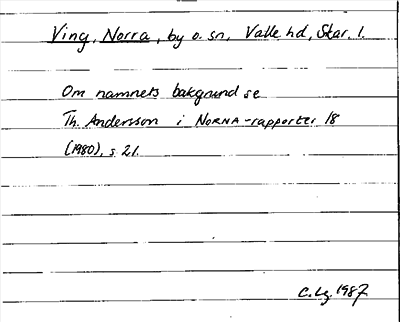 Ving, Norra, by o. sn, Valle hd, Skar. l.
Om namnets bakgrund se
Th. Andersson i NORNA-rapporter 18
(1980), s. 21.
C. Lg. 1987